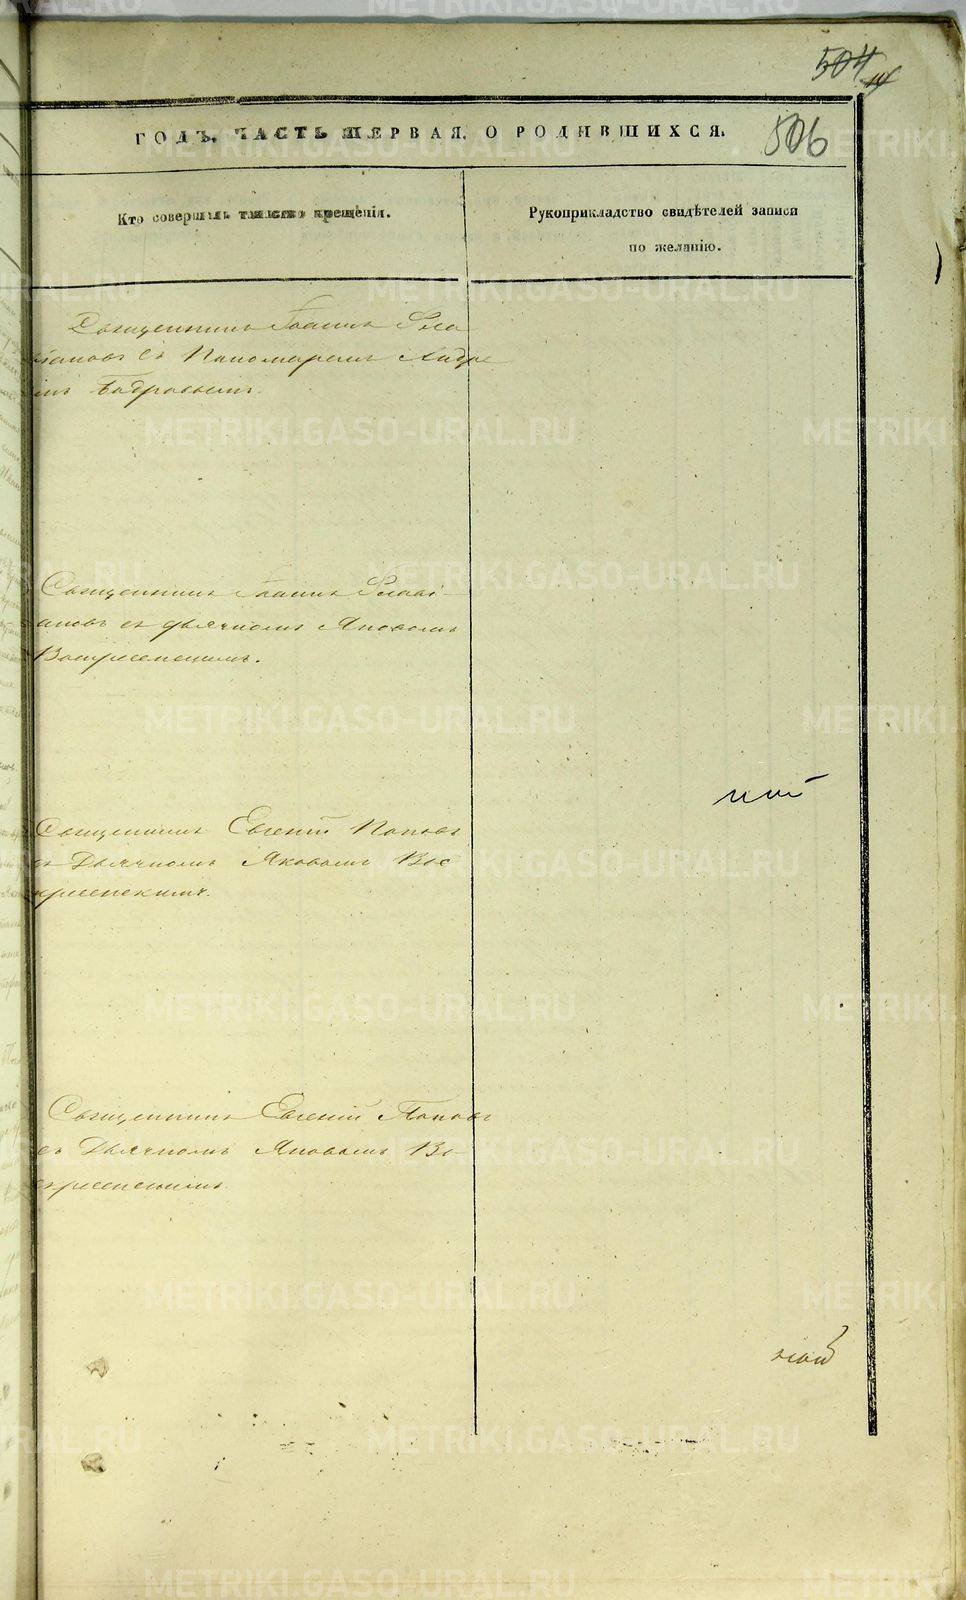 504
ГОДЪ. ЧАСТЬ ПЕРВАЯ. О РОДИВШИХСЯ.
506
Кто совершалъ таинство крещенія.
Рукоприкладство свидѣтелей записи
по желанію.
Священникъ Іоаннъ
съ Пономаремъ Андре
Священникъ Іоаннъ
съ дьячкомъ Яковомъ
Воскресенскимъ.
Священникъ Евгеній Поповъ
съ Дьячкомъ Яковомъ Вос
кресенскимъ.
Священникъ Евгеній Поповъ
съ Дьячкомъ Яковомъ Во-
скресенскимъ.
METRIKI.GASO-URAL.RU